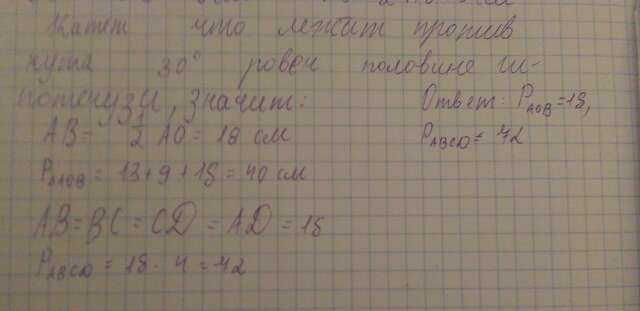 Катет что лежит против
кута 30° ровен половине ги-
потенузы, значит:
AB = 1/2 AO = 18 см
P△AOB = 13 + 9 + 18 = 40 см
AB = BC = CD = AD = 18
PABCD = 18 · 4 = 42
Ответ: PAOB = 18,
PABCD = 42